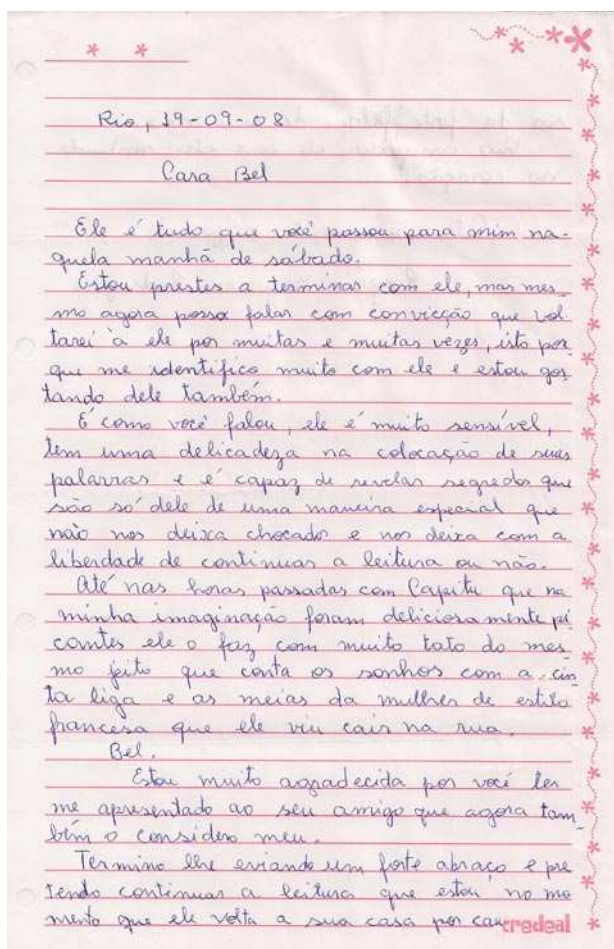 Rio, 19-09-08
Cara Bel
Ele é tudo que você passou para mim na-
quela manhã de sábado.
Estou prestes a terminar com ele, mas mes-
mo agora posso falar com convicção que vol-
tarei à ele por muitas e muitas vezes, isto por
que me identifico muito com ele e estou gos-
tando dele também.
É como você falou, ele é muito sensível,
tem uma delicadeza na colocação de suas
palavras e é capaz de revelar segredos que
são só dele de uma maneira especial que
não nos deixa chocado e nos deixa com a
liberdade de continuar a leitura ou não.
Até nas horas passadas com Capitu que na
minha imaginação foram deliciosamente pi
cantes ele o faz com muito tato do mes-
mo jeito que conta os sonhos com a cin
ta liga e as meias da mulher de estilo
francesa que ele viu cair na rua.
Bel.
Estou muito agradecida por você ter
me apresentado ao seu amigo que agora tam-
bém o considero meu.
Termino lhe eviando um forte abraço e pre
tendo continuar a leitura que estou no mo
mento que ele volta a sua casa por cau
credeal